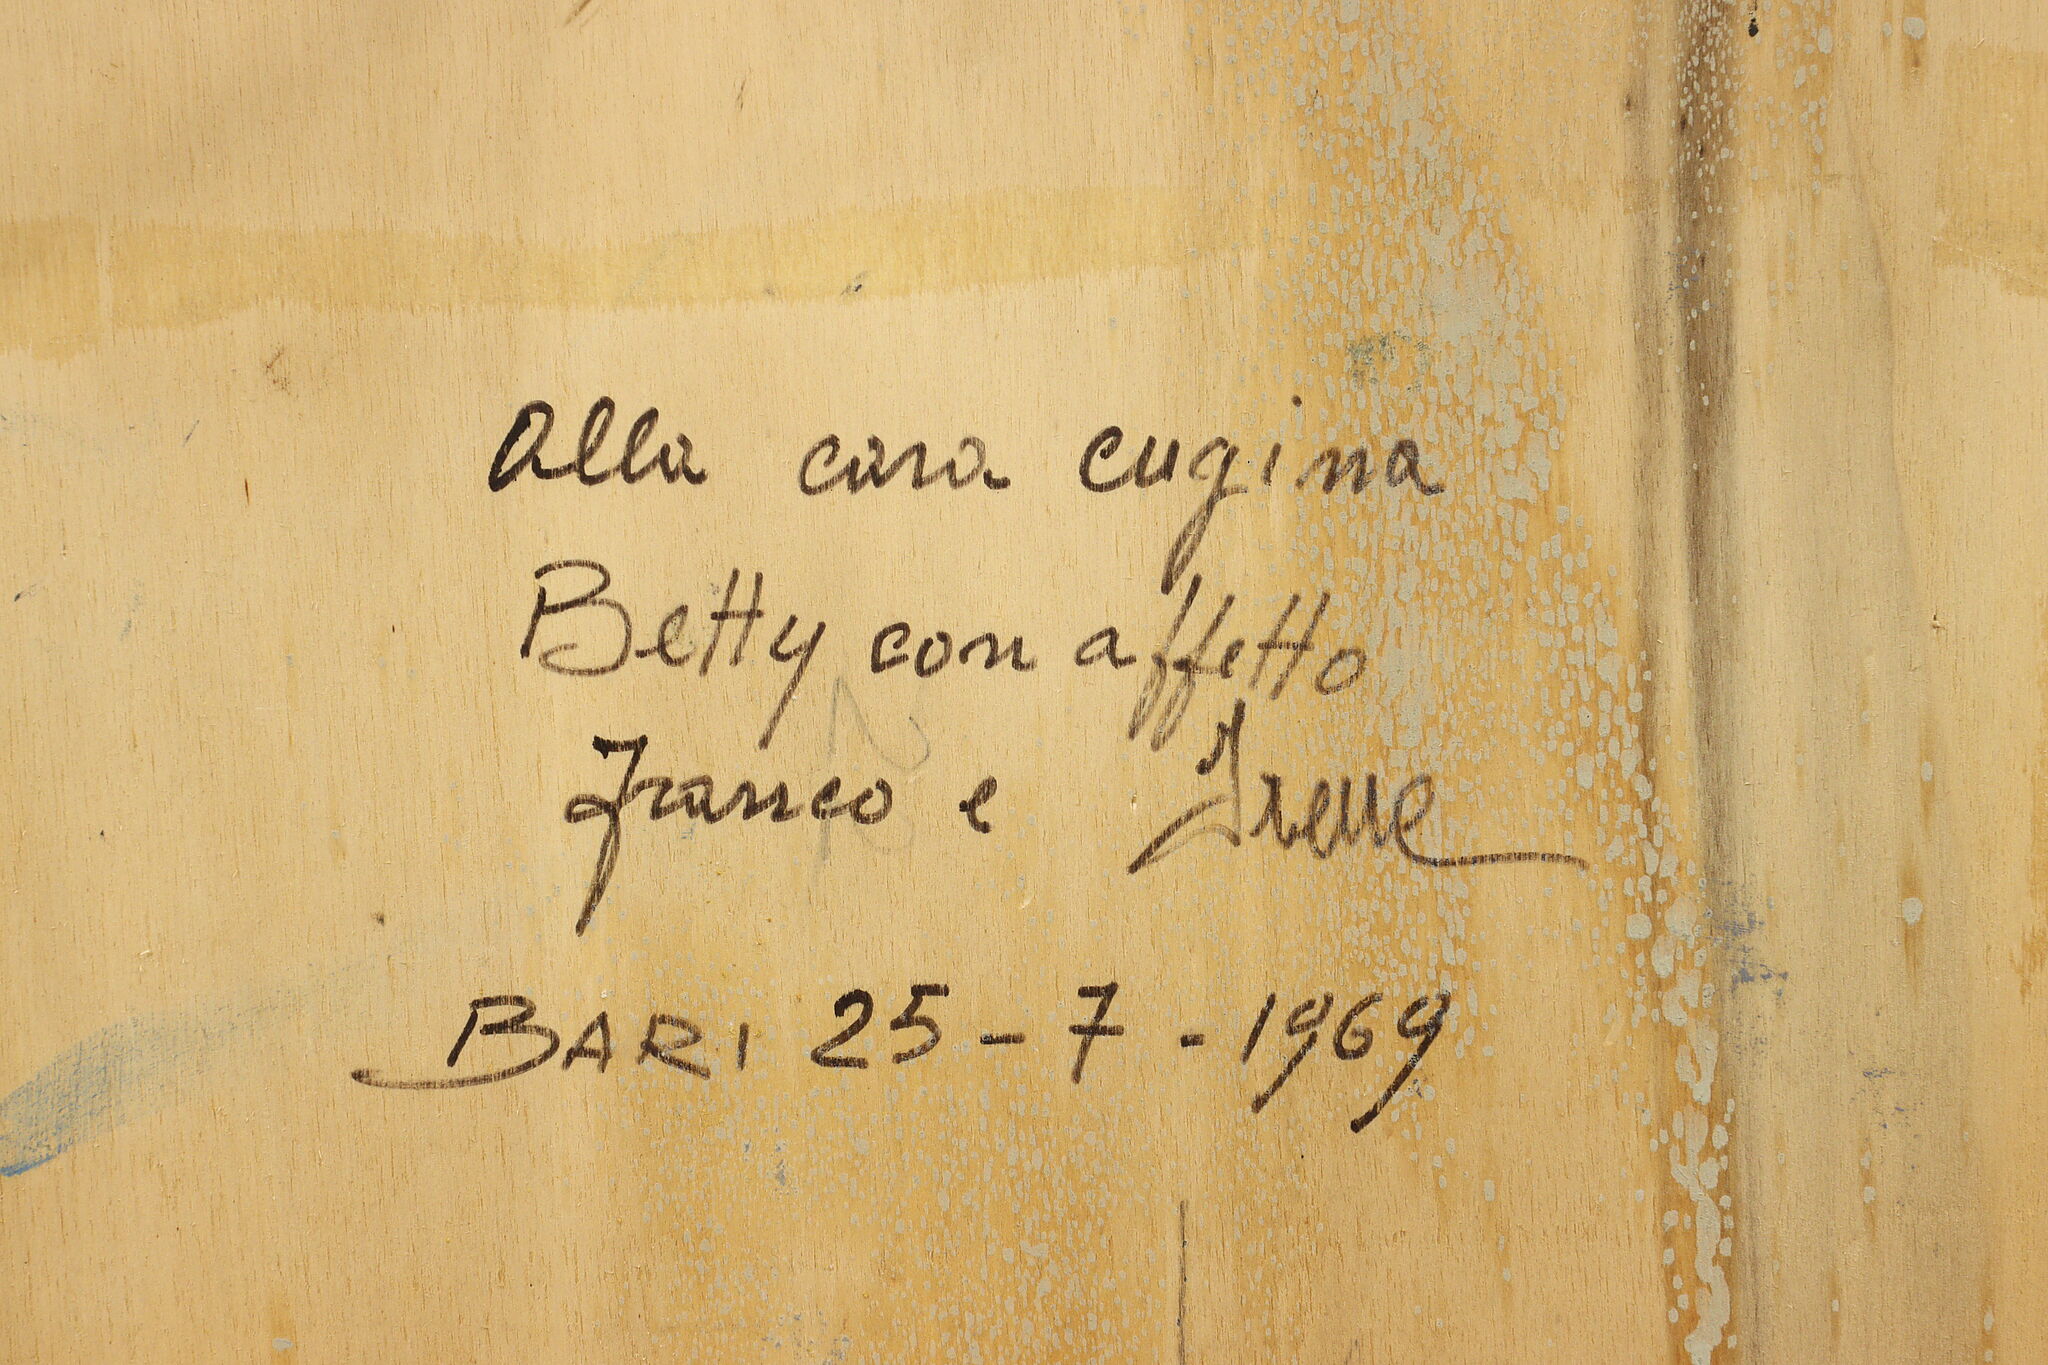 Alla cara cugina
Betty con affetto
Franco e Irene
BARI 25-7-1969